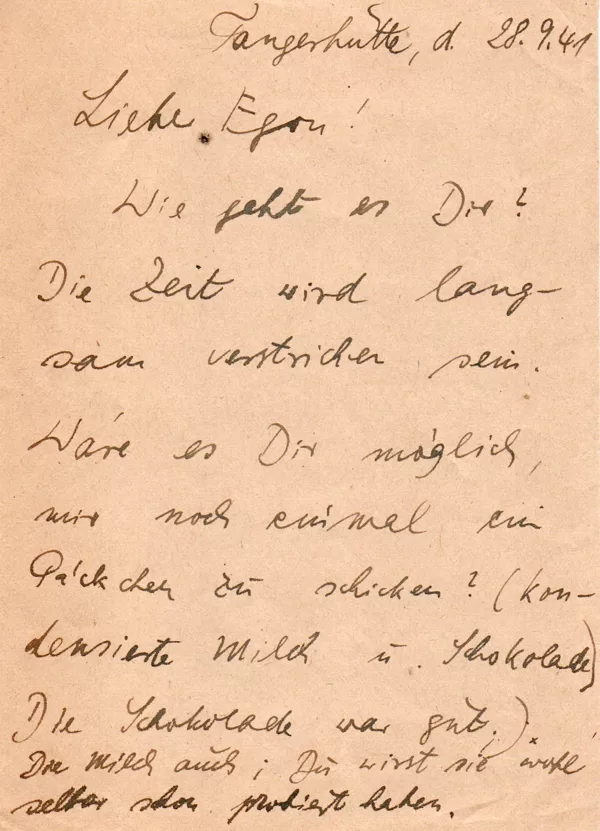 Tangerhütte, d. 28.9.41
Liebe Egon!
Wie geht es Dir?
Die Zeit wird lang-
sam verstrichen sein.
Wäre es Dir möglich,
mir noch einmal ein
Päckchen zu schicken? (Kon-
densierte Milch u. Schokolade)
Die Schokolade war gut.).
Die Milch auch; Du wirst sie wohl
selber schon probiert haben.